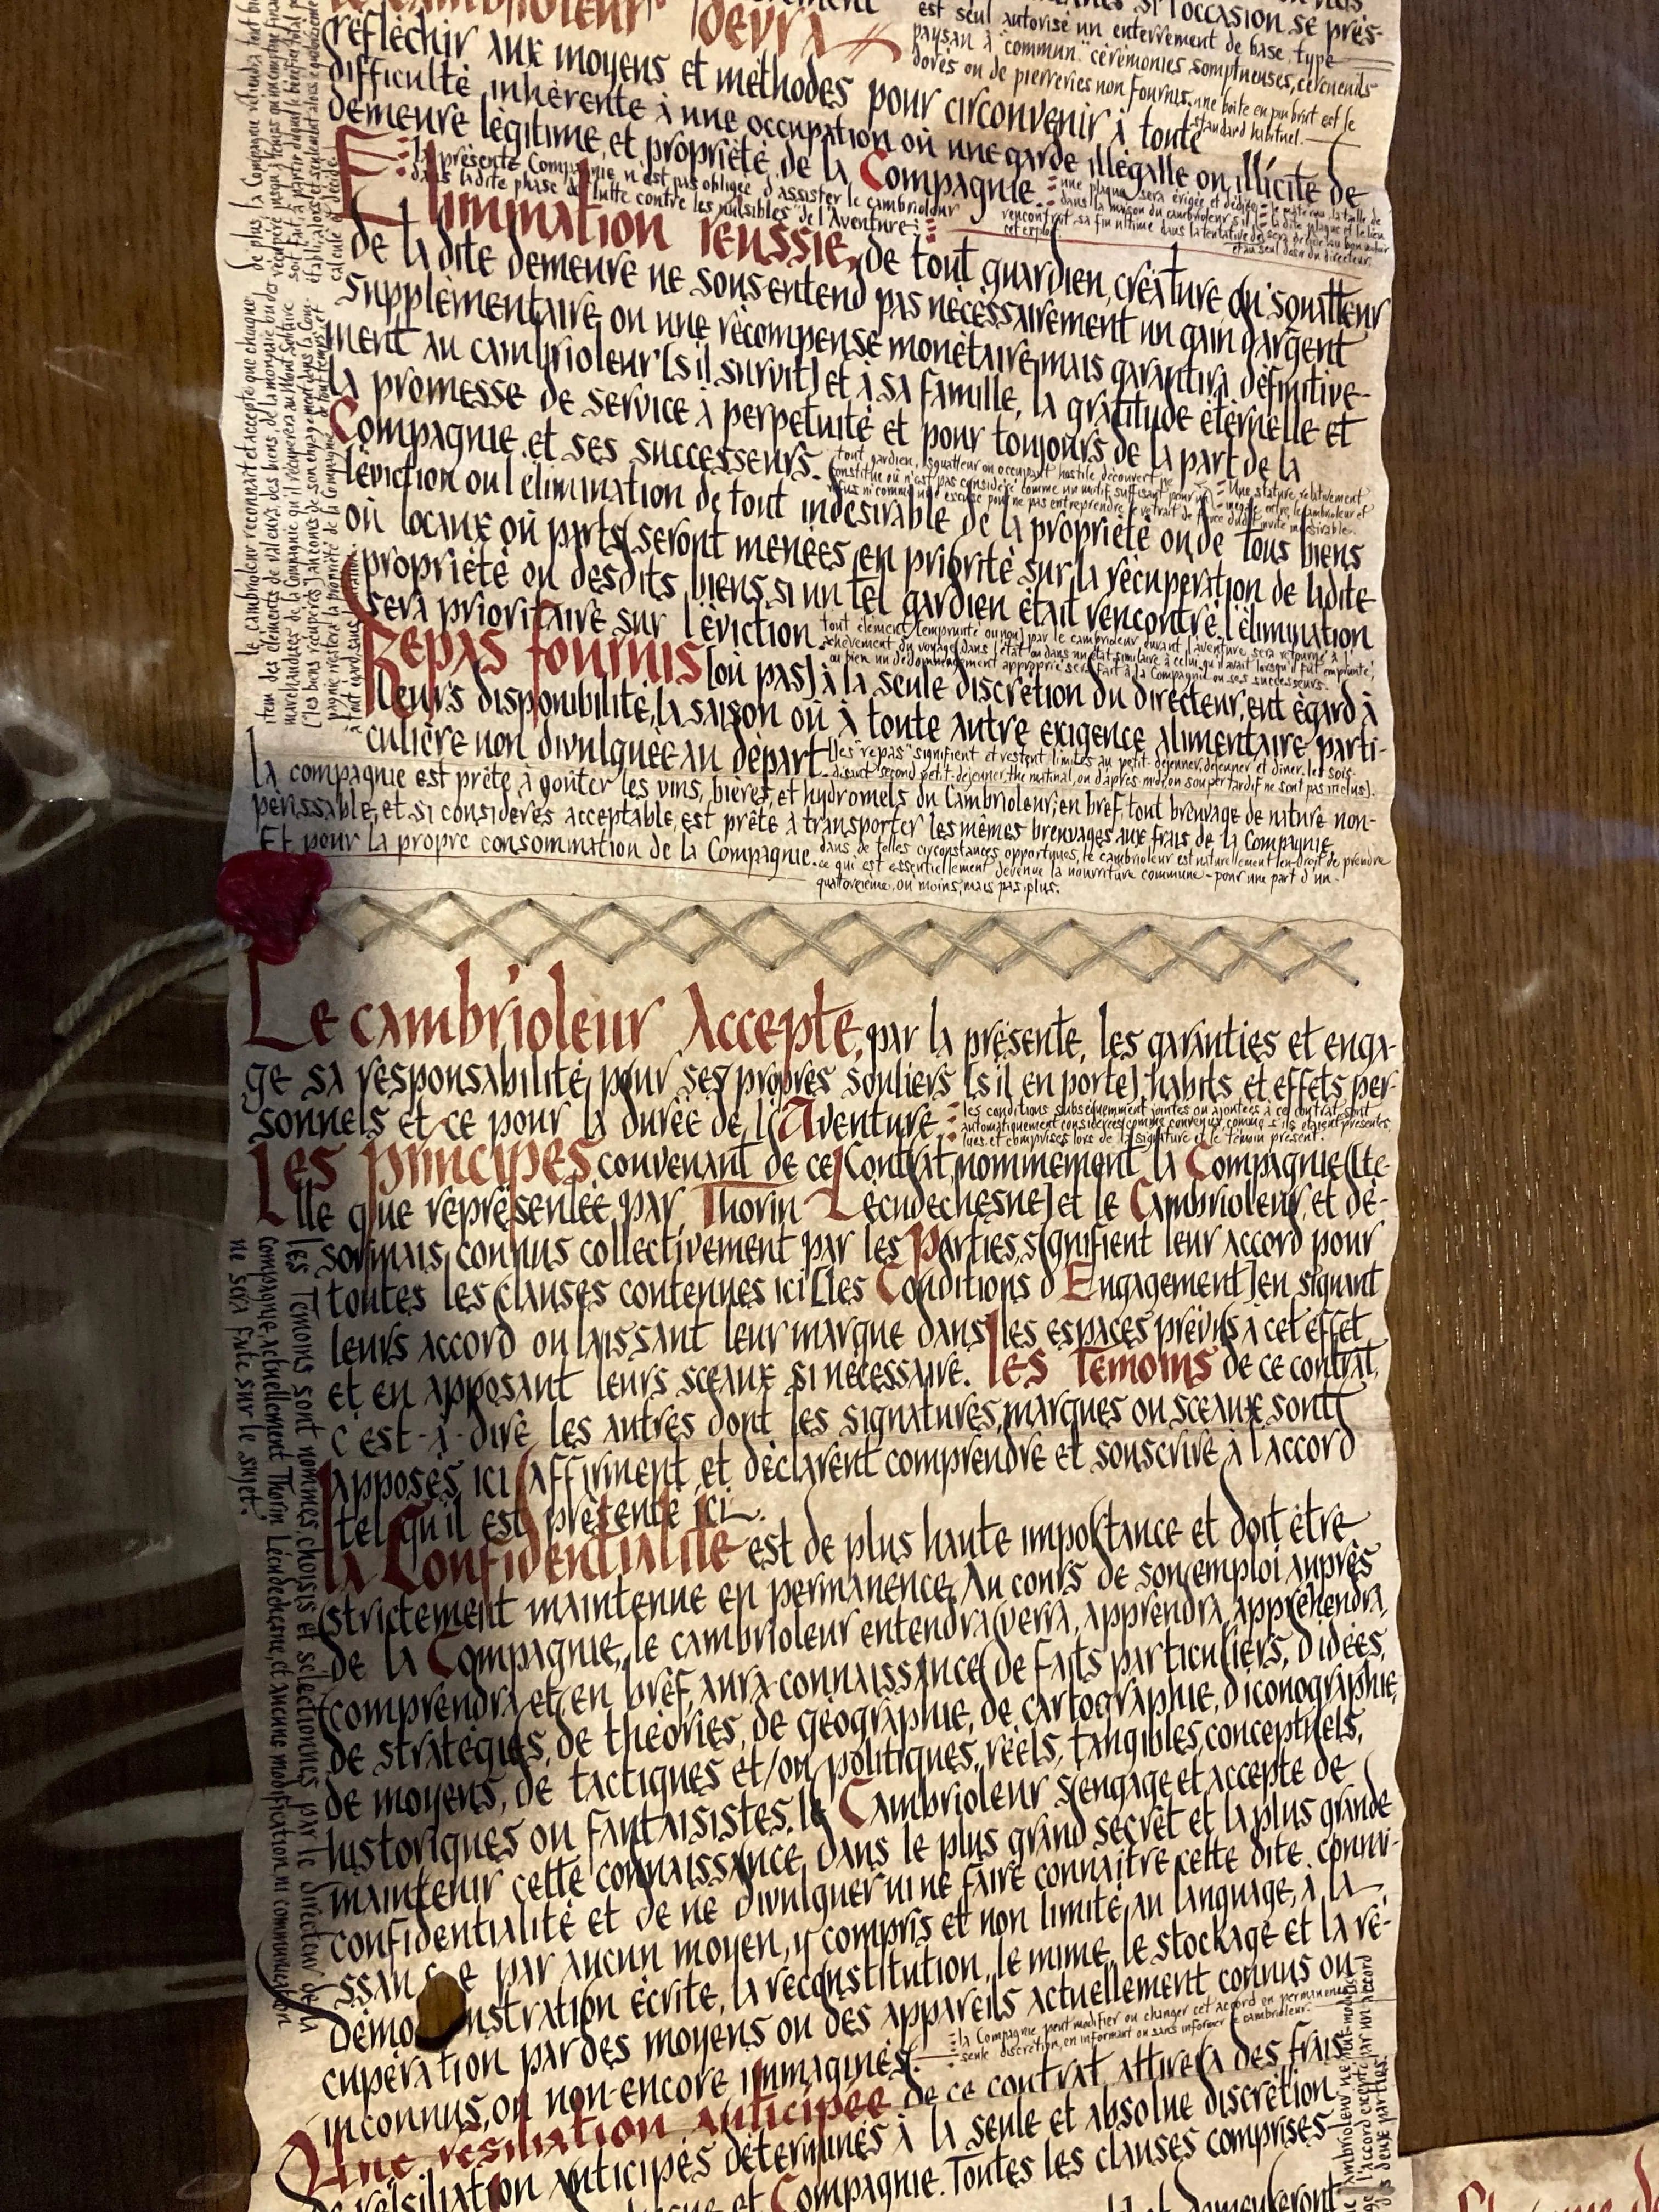 le cambrioleur devra
réfléchir aux moyens et méthodes pour circonvenir à toute
difficulté inhérente à une occupation ou une garde illégalle ou illicite de
demeure légitime, et propriété de la Compagnie.
si l'occasion se prés-
est seul autorisé un enterrement de base, type
paysan à "commun" cérémonies somptueuses, cercueils
dorés ou de pierreries non fournis, une boite en pin brut est le
standard habituel.
la présente Compagnie n'est pas obligée d'assister le cambrioleur
dans ladite phase de "lutte contre les nuisibles" de l'Aventure:
une plaque sera érigée, et dédiée
dans la maison du cambrioleur s'il
rencontrait sa fin ultime dans la tentative de
cet exploit
et au seul desir du directeur.
Elimination réussie, de tout guardien, créature ou squatteur
de la dite demeure ne sous-entend pas nécessairement un gain d'argent
supplémentaire ou une récompense monétaire, mais garantira définitive-
ment au cambrioleur [s'il survit] et à sa famille, la gratitude éternelle et
la promesse de service à perpetuité et pour toujours de la part de la
Compagnie et ses successeurs.
tout gardien, squatteur ou occupant hostile découvert ne
constitue ou n'est pas considéré comme un motif suffisant pour un
refus ni comme une excuse pour ne pas entreprendre le retrait de force dudit invité indésirable.
Une stature relativement
inégale entre le cambrioleur et
L'éviction ou l'élimination de tout indésirable de la propriété ou de tous biens
ou locaux ou parts, seront menées en priorité sur la récupération de ladite
propriété ou desdits biens, si un tel gardien était rencontré, l'élimination
sera prioritaire sur l'éviction.
tout élément [emprunté ou non] par le cambrioleur durant l'aventure sera retourné à l'
achèvement du voyage dans l'état ou dans un état similaire à celui qu'il avait lorsqu'il fut emprunté,
ou bien un dédommagement approprié sera fait à la Compagnie ou ses successeurs.
Repas fournis [ou pas] à la seule discrétion du directeur, eut égard à
leurs disponibilité, la saison ou à toute autre exigence alimentaire parti-
culière non divulguée au départ.
[les "repas" signifient et restent limités au petit-dejeuner, dejeuner et diner. les sois-
disant second petit-dejeuner, thé matinal, ou d'après-midi, ou souper tardif ne sont pas inclus].
La compagnie est prête à goûter les vins, bières, et hydromels du Cambrioleur; en bref, tout breuvage de nature non-
périssable, et si considérés acceptable, est prête à transporter les mêmes breuvages aux frais de la Compagnie.
Et pour la propre consommation de la Compagnie.
dans de telles circonstances opportunes, le cambrioleur est naturellement en droit de prendre
ce qui est essentiellement devenue la nourriture commune - pour une part d'un-
quatorzième, ou moins, mais pas plus.
le cambrioleur reconnait et accepte que chaque
item des éléments de valeurs, des biens, de la monnaie ou des
marchandises de la Compagnie qu'il récupèrera au Mont Solitaire
["les biens récupérés"] au cours de son engagement dans la Com-
pagnie restera la propriété de la Compagnie de tout temps, et
à tout égard, sans limitation.
Le cambrioleur Accepte, par la présente, les garanties et enga-
ge sa responsabilité, pour ses propres souliers [s'il en porte], habits et effets per-
sonnels et ce pour la durée de l'Aventure.
les conditions subséquemment jointes ou ajoutées à ce contrat sont
automatiquement considérées comme convenues, comme si ils étaient présentes,
lues, et comprises lors de la signature et le témoin présent.
Les principes convenant de ce Contrat, nommément la Compagnie [te-
lle que représentée par Thorin Lécudechesne] et le Cambrioleur, et dé-
sormais connus collectivement par les Parties, signifient leur accord pour
toutes les clauses contenues ici [les Conditions d'Engagement] en signant
leurs accord ou laissant leur marque dans les espaces prévus à cet effet
et en apposant leurs sceaux si nécessaire. les Témoins de ce contrat,
c'est-à-dire les autres dont les signatures, marques ou sceaux sont
apposés ici affirment et déclarent comprendre et souscrire à l'accord
tel qu'il est présenté ici.
les Témoins sont nommés, choisis et sélectionnés par le directeur de la
compagnie, actuellement Thorin Lécudechesne, et aucune modification ni communication
ne sera faite sur le sujet.
La Confidentialité est de plus haute importance et doit être
strictement maintenue en permanence. Au cours de son emploi auprès
de la Compagnie, le cambrioleur entendra, verra, apprendra, appréhendra,
comprendra et, en bref, aura connaissance de faits particuliers, d'idées,
de stratégies, de théories, de géographie, de cartographie, d'iconographie,
de moyens, de tactiques et/ou politiques, réels, tangibles, conceptuels,
historiques ou fantaisistes. le Cambrioleur s'engage et accepte de
maintenir cette connaissance dans le plus grand secret et la plus grande
confidentialité et de ne divulguer ni ne faire connaitre cette dite connai-
ssance par aucun moyen, y compris et non limité, au language, à la
démonstration écrite, la reconstitution, le mime, le stockage et la ré-
cupération par des moyens ou des appareils actuellement connus ou
inconnus, ou non-encore immaginés.
la Compagnie peut modifier ou changer cet accord en permanence
seule discrétion, en informant ou sans informer le cambrioleur.
Une résiliation anticipée de ce contrat attirera des frais
de résiliation anticipés déterminés à la seule et absolue discrétion
Compagnie. Toutes les clauses comprises
demeureront